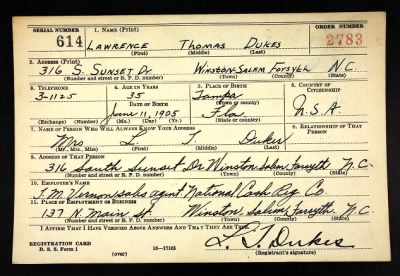 SERIAL NUMBER 1. NAME (Print) ORDER NUMBER
614 LAWRENCE THOMAS DUKES 2783
(First) (Middle) (Last)
2. ADDRESS (Print)
316 S. SUNSET Dr. WINSTON-SALEM FORSYTH N.C.
(Number and street or R. F. D. number) (Town) (County) (State)
3. TELEPHONE 4. AGE IN YEARS 5. PLACE OF BIRTH 6. COUNTRY OF CITIZENSHIP
3-1125 35 Tampa
DATE OF BIRTH (Town or county)
June 11, 1905 Fla U.S.A
(Exchange) (Number) (Mo.) (Day) (Yr.) (State or country)
7. NAME OF PERSON WHO WILL ALWAYS KNOW YOUR ADDRESS 8. RELATIONSHIP OF THAT PERSON
Mrs L. T. Dukes
(Mr., Mrs., Miss) (First) (Middle) (Last)
9. ADDRESS OF THAT PERSON
316 South Sunset Dr Winston Salem Forsyth N.C.
(Number and street or R. F. D. number) (Town) (County) (State)
10. EMPLOYER'S NAME
J. M. Vernon, sales agent National Cash Reg Co.
11. PLACE OF EMPLOYMENT OR BUSINESS
137 N. Main St. Winston Salem Forsyth N.C
(Number and street or R. F. D. number) (Town) (County) (State)
I AFFIRM THAT I HAVE VERIFIED ABOVE ANSWERS AND THAT THEY ARE TRUE.
REGISTRATION CARD L. T. Dukes
D. S. S. Form 1 (over) 16—17105 (Registrant's signature)